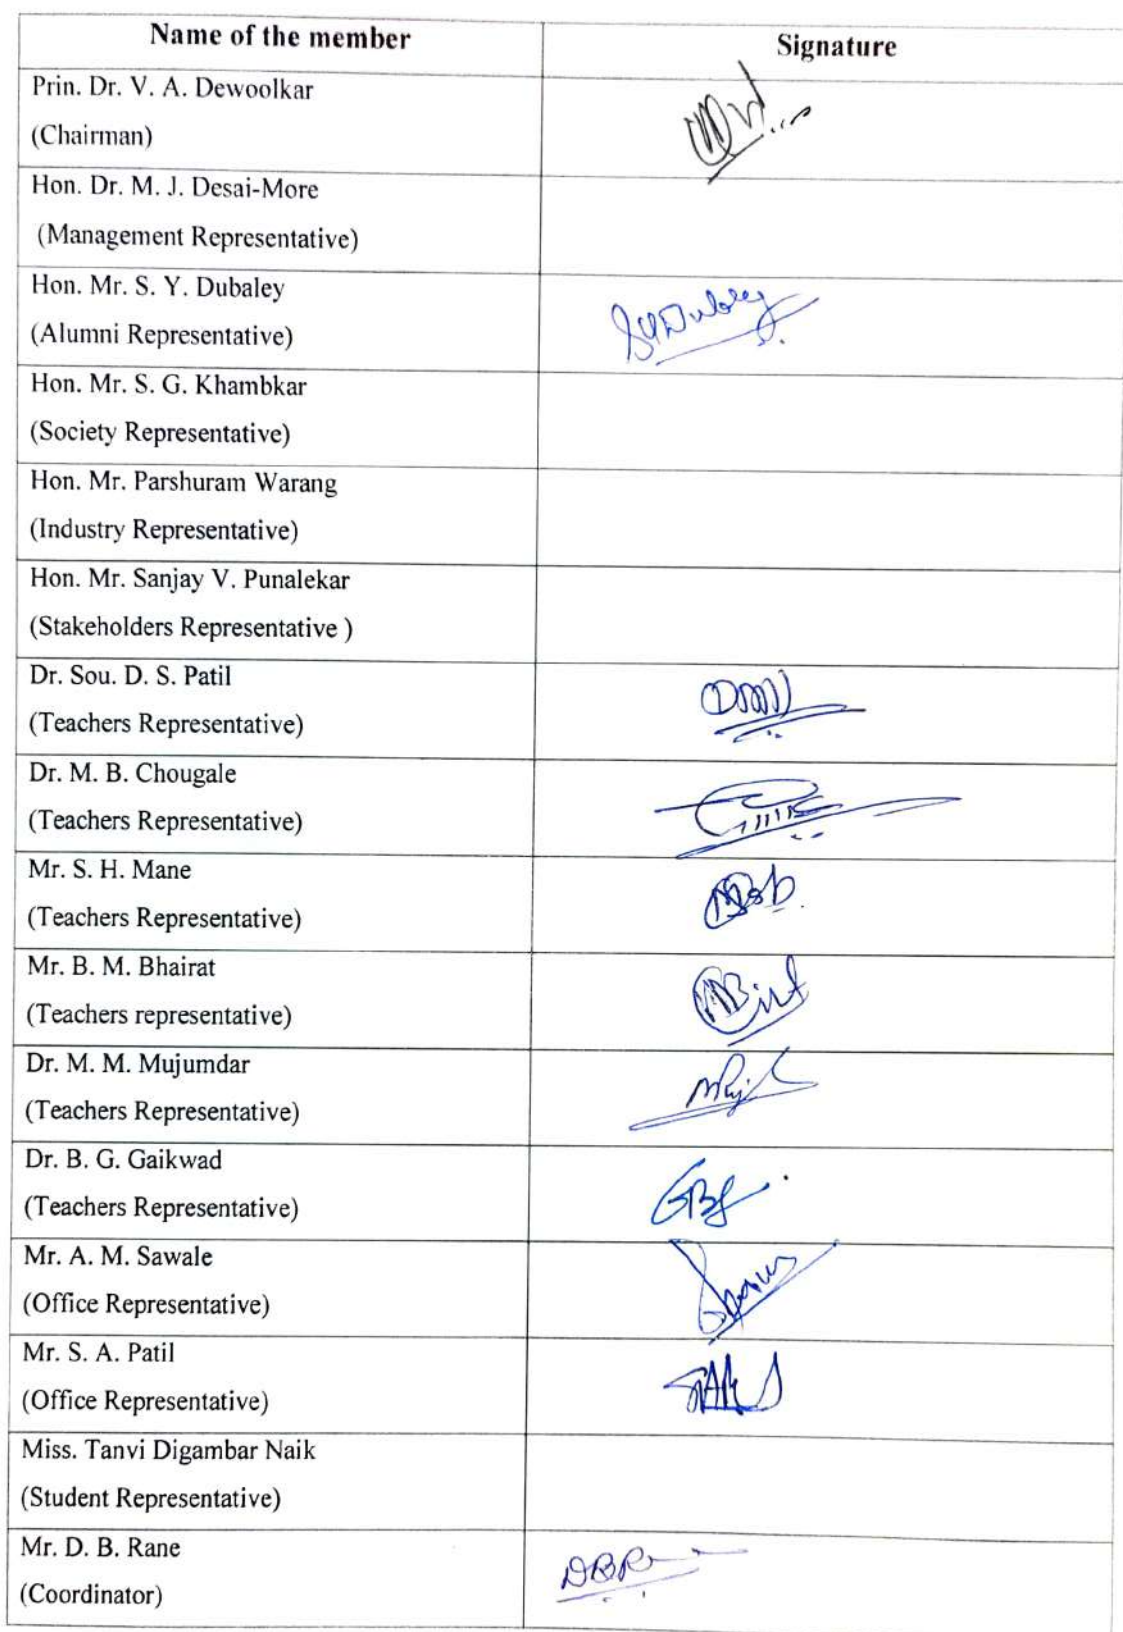 Name of the member Signature
Prin. Dr. V. A. Dewoolkar
(Chairman)
Hon. Dr. M. J. Desai-More
(Management Representative)
Hon. Mr. S. Y. Dubaley
(Alumni Representative)
SYDubaley
Hon. Mr. S. G. Khambkar
(Society Representative)
Hon. Mr. Parshuram Warang
(Industry Representative)
Hon. Mr. Sanjay V. Punalekar
(Stakeholders Representative )
Dr. Sou. D. S. Patil
(Teachers Representative)
Dr. M. B. Chougale
(Teachers Representative)
Mr. S. H. Mane
(Teachers Representative)
Mr. B. M. Bhairat
(Teachers representative)
Dr. M. M. Mujumdar
(Teachers Representative)
Dr. B. G. Gaikwad
(Teachers Representative)
Mr. A. M. Sawale
(Office Representative)
Mr. S. A. Patil
(Office Representative)
Miss. Tanvi Digambar Naik
(Student Representative)
Mr. D. B. Rane
(Coordinator)